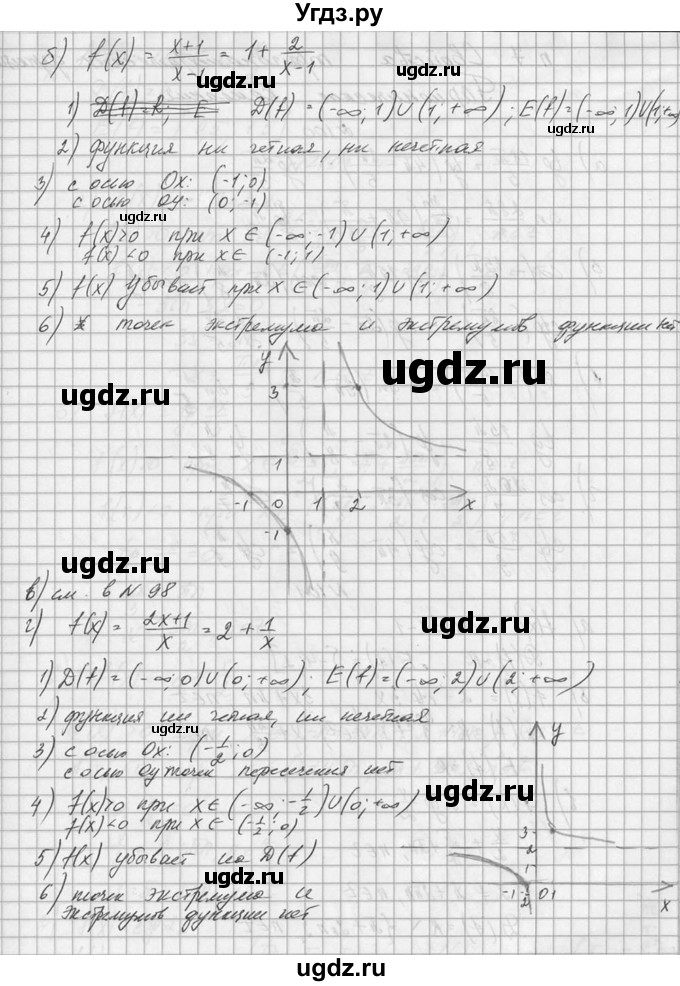 Угдз.ру
б) f(x) = (x+1)/(x-1) = 1 + 2/(x-1)
ugdz.ru
ugdz.ru
1) D(f)=R; E D(f) = (-∞; 1)∪(1; +∞); E(f)=(-∞; 1)∪(1;+∞)
ugdz.ru
2) функция ни четная, ни нечетная
3) с осью Ox: (-1; 0)
с осью Oy: (0; -1)
ugdz.ru
4) f(x)>0 при x ∈ (-∞; -1)∪(1; +∞)
f(x)<0 при x ∈ (-1; 1)
ugdz.ru
5) f(x) убывает при x ∈ (-∞; 1)∪(1; +∞)
6) точек экстремума и экстремумов функции нет
y
ugdz.ru
ugdz.ru
3
1
-1 0 1 2 x
-1
ugdz.ru
в) см. в N 98
г) f(x) = (2x+1)/x = 2 + 1/x
ugdz.ru
1) D(f) = (-∞; 0)∪(0; +∞); E(f) = (-∞; 2)∪(2; +∞)
2) функция ни четная, ни нечетная
ugdz.ru
3) с осью Ox: (-1/2; 0)
с осью Oy точек пересечения нет
y
4) f(x)>0 при x ∈ (-∞; -1/2]∪(0; +∞)
f(x)<0 при x ∈ (-1/2; 0)
ugdz.ru
ugdz.ru
3
2
1
5) f(x) убывает на D(f)
ugdz.ru
6) точек экстремума и
экстремумов функции нет
-1 -1/2 0 1 x
ugdz.ru
ugdz.ru